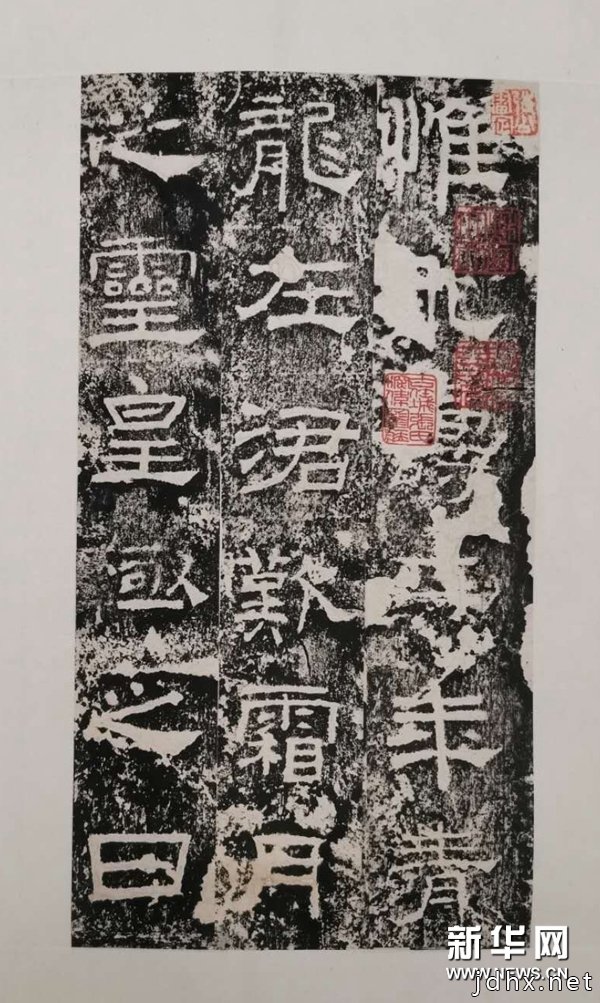 惟永壽二年青
龍在涒歎霜月
之靈皇極之日
新华网
WWW.NEWS.CN
jdhx.net